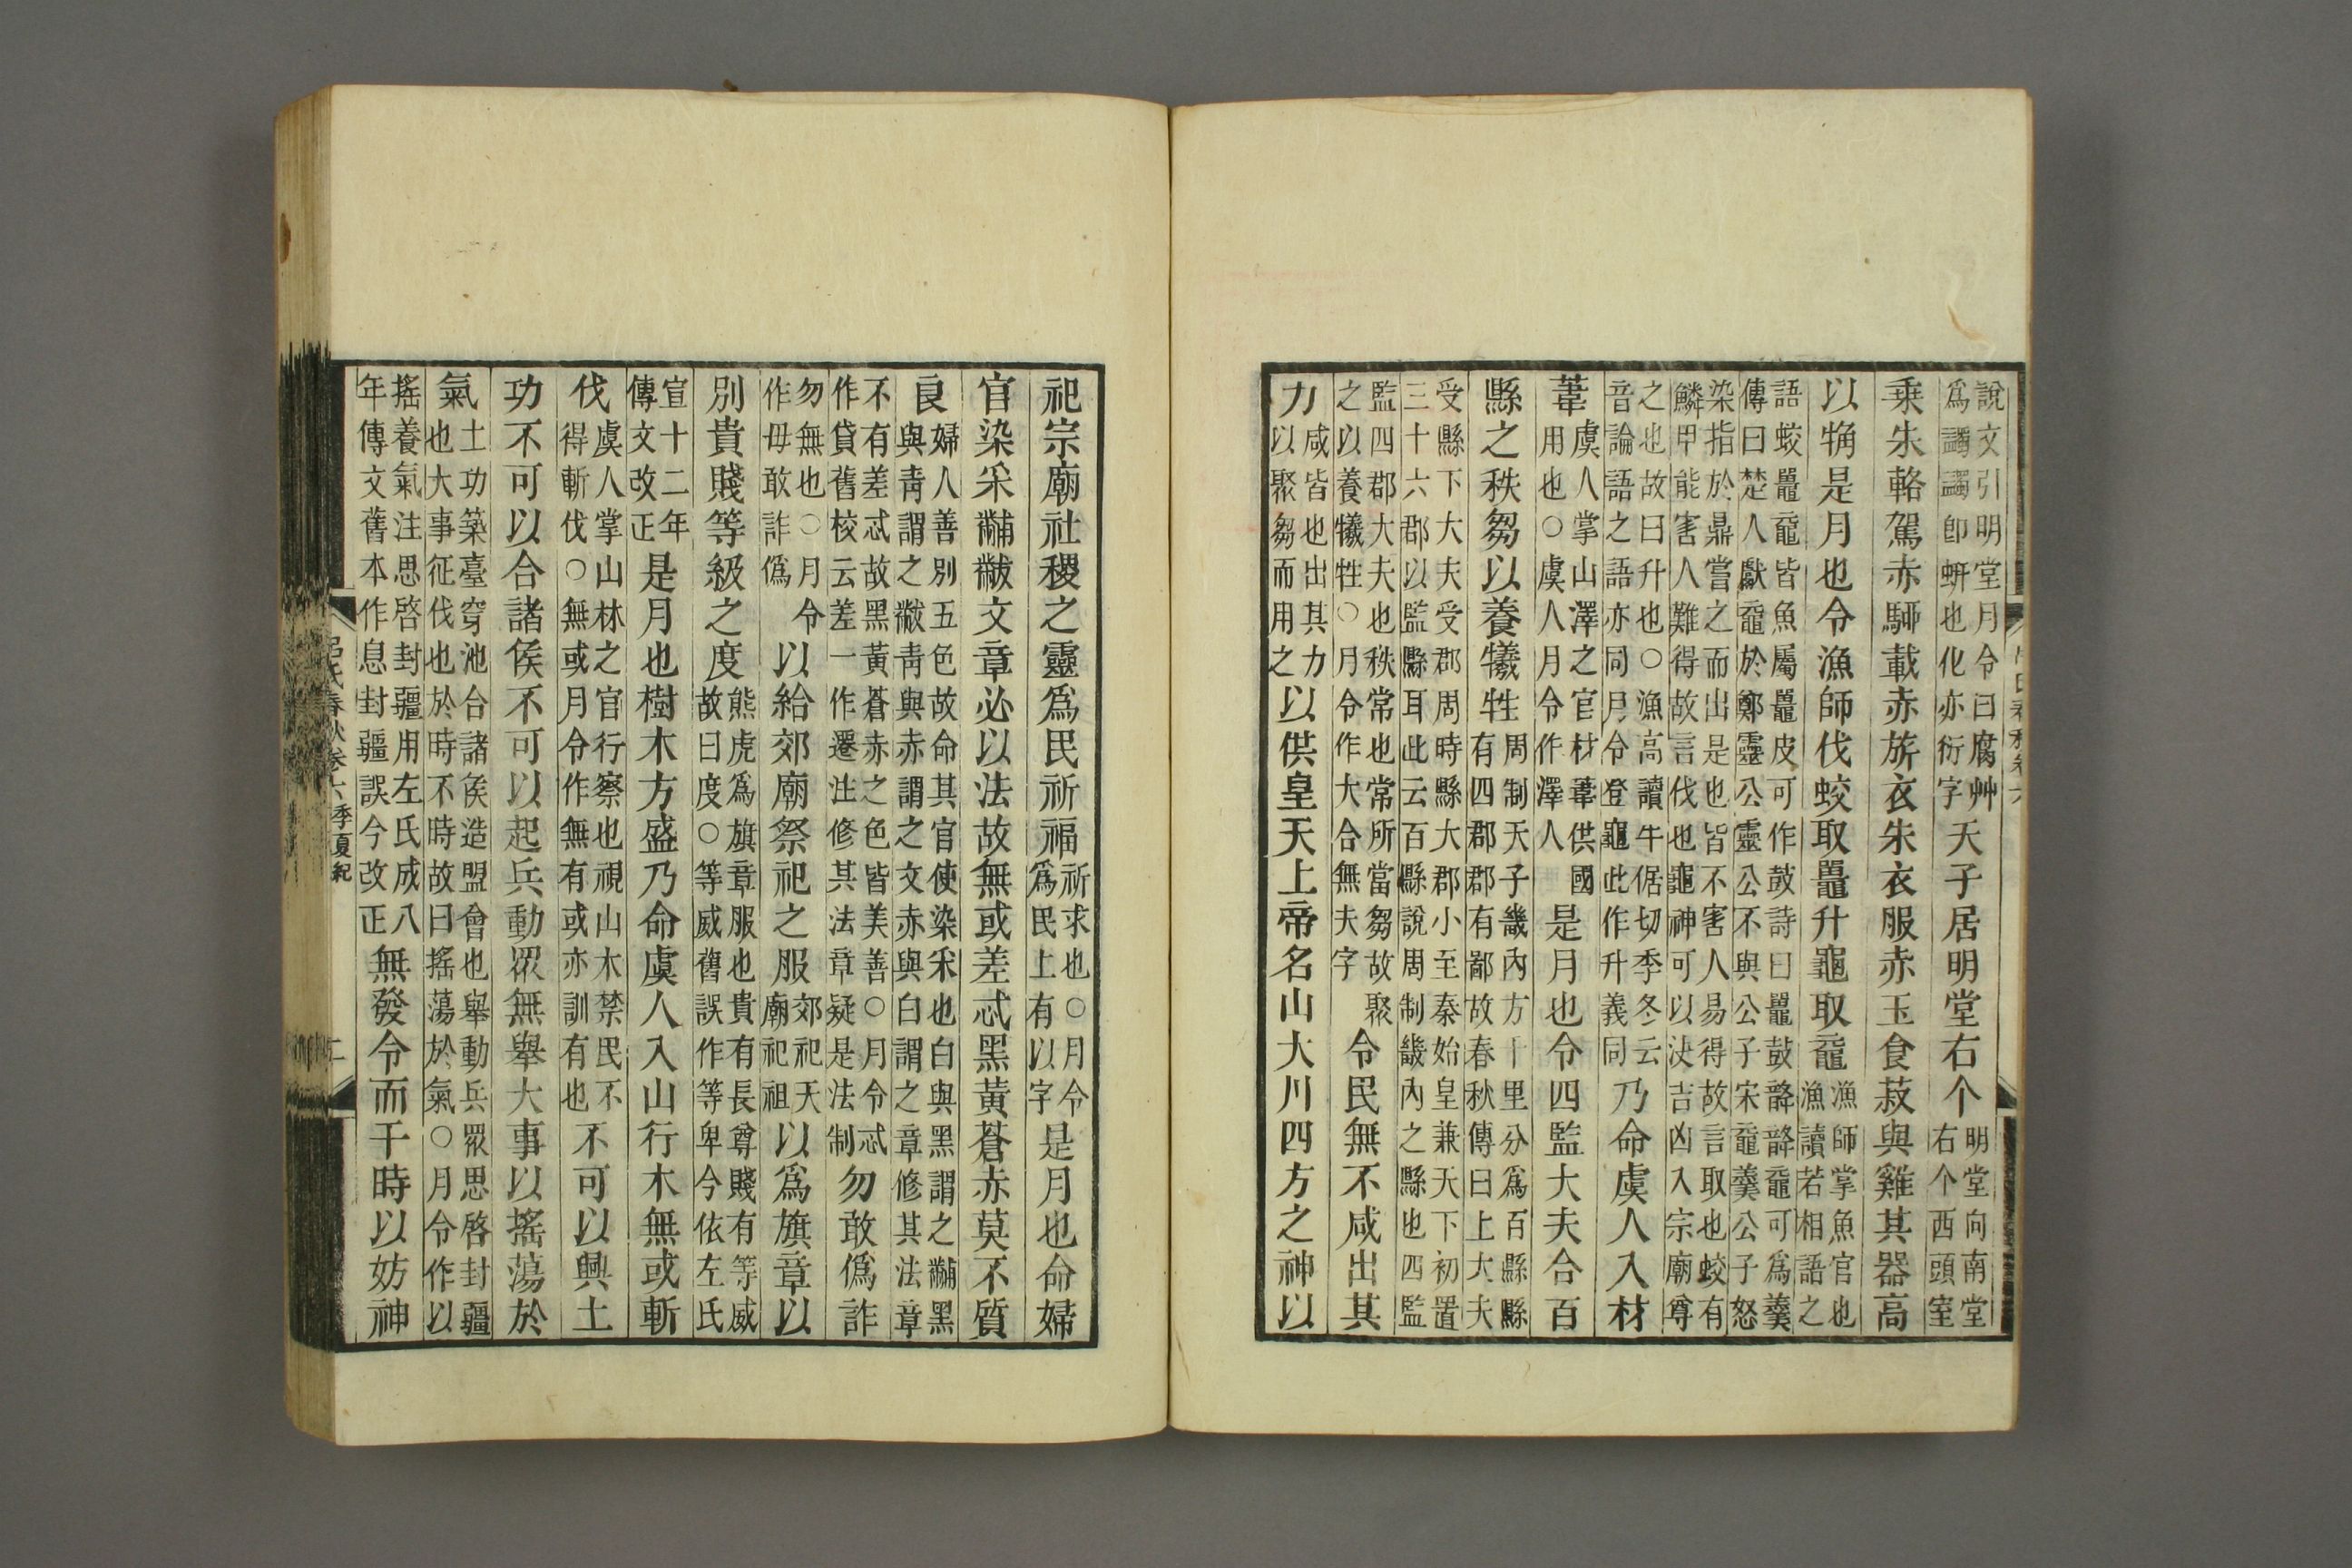 說文引明堂月令曰腐艸爲蠲蠲卽蚈也化亦衍字天子居明堂右个明堂向南堂右个西頭室
乗朱輅駕赤騮載赤旂衣朱衣服赤玉食菽與雞其器高
以觕是月也令漁師伐蛟取鼉升龜取黿漁師掌魚官也漁讀若相語之
語蛟鼉黿皆魚屬鼉皮可作鼓詩曰鼉鼓韸韸黿可爲羹傳曰楚人獻黿於鄭靈公靈公不與公子宋黿羹公子怒
染指於鼎嘗之而出是也皆不害人易得故言取也蛟有鱗甲能害人難得故言伐也龜神可以決吉凶入宗廟尊
之也故曰升也○漁高讀牛倨切季冬云音論語之語亦同月令登龜此作升義同乃命虞人入材
葦虞人掌山澤之官材葦供國用也○虞人月令作澤人是月也令四監大夫合百
縣之秩芻以養犧牲周制天子畿內方千里分爲百縣縣有四郡郡有鄙故春秋傳曰上大夫
受縣下大夫受郡周時縣大郡小至秦始皇兼天下初置三十六郡以監縣耳此云百縣說周制畿內之縣也四監
監四郡大夫也秩常也常所當芻故聚之以養犧牲○月令作大合無夫字令民無不咸出其
力咸皆也出其力以聚芻而用之以供皇天上帝名山大川四方之神以
祀宗廟社稷之靈爲民祈福祈求也○月令爲民上有以字是月也命婦
官染采黼黻文章必以法故無或差忒黑黃蒼赤莫不質
良婦人善別五色故命其官使染采也白與黑謂之黼黑與靑謂之黻靑與赤謂之文赤與白謂之章修其法章
不有差忒故黑黃蒼赤之色皆美善○月令忒作貸舊校云差一作遷注修其法章疑是法制勿敢僞詐
勿無也○月令作毋敢詐僞以給郊廟祭祀之服郊祀天廟祀祖以爲旗章以
別貴賤等級之度熊虎爲旗章服也貴有長尊賤有等威故曰度○等威舊誤作等卑今依左氏
宣十二年傳文改正是月也樹木方盛乃命虞人入山行木無或斬
伐虞人掌山林之官行察也視山木禁民不得斬伐○無或月令作無有或亦訓有也不可以興土
功不可以合諸侯不可以起兵動眾無舉大事以搖蕩於
氣土功築臺穿池合諸侯造盟會也舉動兵眾思啓封疆也大事征伐也於時不時故曰搖蕩於氣○月令作以
搖養氣注思啓封疆用左氏成八年傳文舊本作息封疆誤今改正無發令而干時以妨神
呂氏春秋卷六季夏紀 二